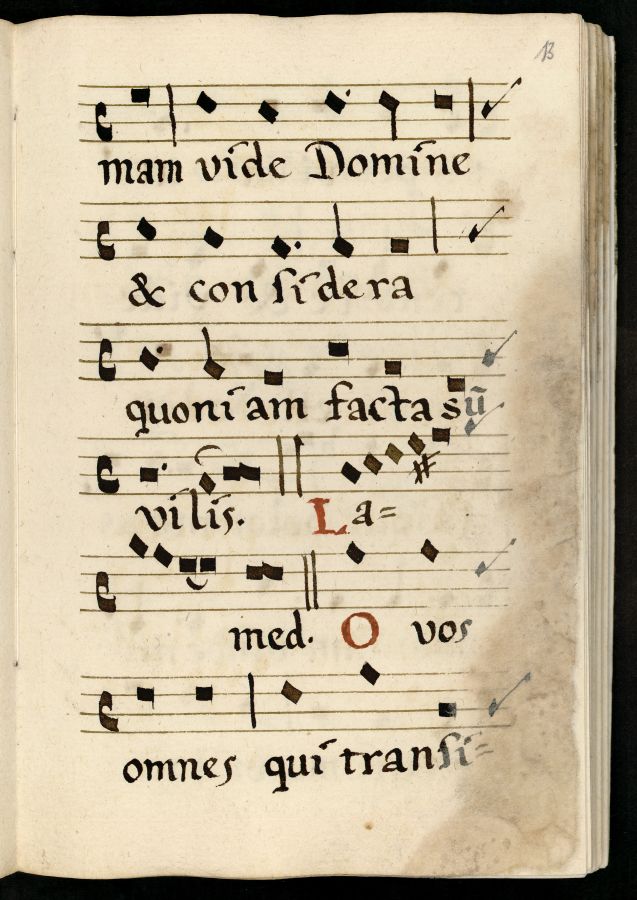 13
mam vide Domine
& considera
quoniam facta sũ
vilis. La=
med. O vos
omnes qui transi=